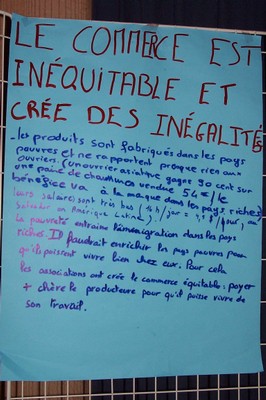 LE COMMERCE EST
INÉQUITABLE ET
CRÉE DES INÉGALITÉS
- les produits sont fabriqués dans les pays
pauvres et ne rapportent proque rien aux
ouvriers. (un ouvrier asiatique gagne 90 cent sur
une paire de chaussures vendue 54 €/le
bénéfice va à la marque dans les pays riches)
leurs salaires sont très bas (4 h/jour = /jour, au
Salvador en Amérique Latine).
La pauvreté entraine l'immigration dans les pays
riches. Il faudrait enrichir les pays pauvres pour
qu'ils puissent vivre bien chez eux. Pour cela
les associations ont créé le commerce équitable : payer
+ chère le producteur pour qu'il puisse vivre de
son travail.